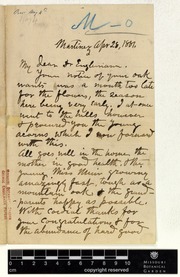 M-O
Martinez Apr 26, 1881
My Dear Dr Engelmann.
Your note of your oak
wants was a month too late
for the flowers, the season
here being very early. I at once
went to the hills, however
& procured you the young
acorns which I now forward
with this.
All goes well in the home the
mother in good health & the
young Miss Muir growing
amazingly fast, tough as a
mountain oak & the grand
parents happy as possible.
With cordial thanks for
your Congratulations & for
the abundance of hard good
MISSOURI
BOTANICAL
GARDEN